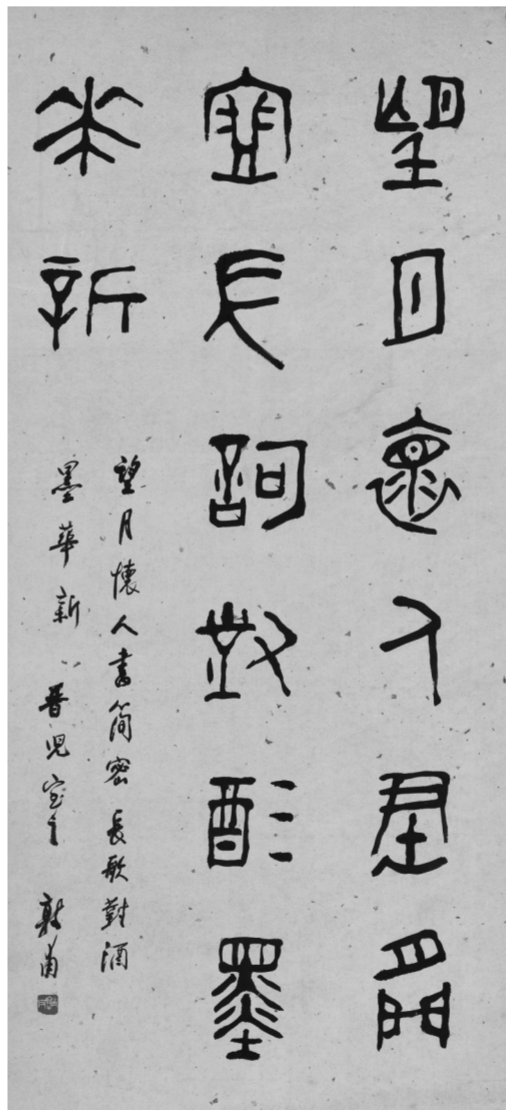 望月懷人書簡
密長歌對酒墨
華新
望月懷人書簡密長歌對酒
墨華新 晋児室主